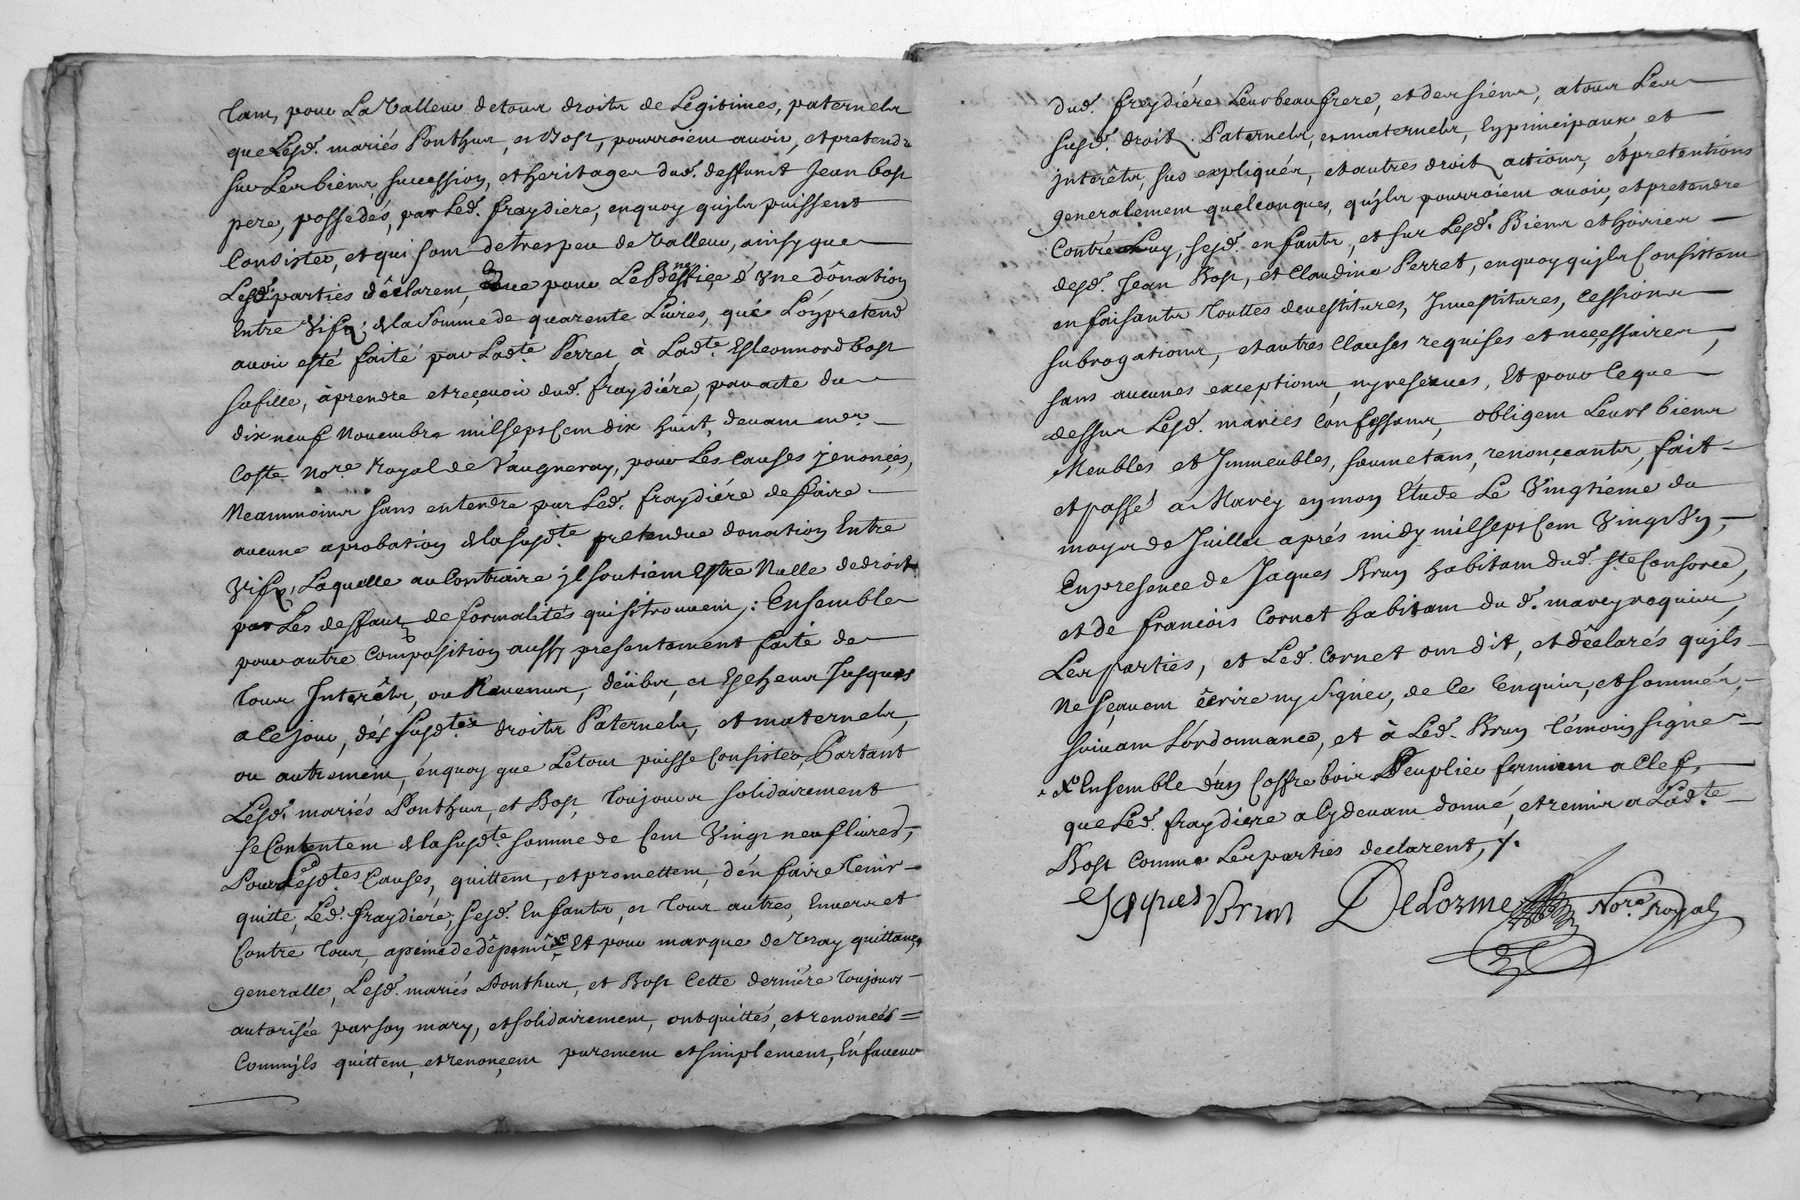 tant, pour La Valleur detous droits de Légitimes, paternels
que Lesd. mariés Ponthus, et Bost, pourroient auoir, et pretendre
sur Les biens succession, et heritages dud. deffunt Jean bost
pere, possedés, par Led. fraydiere, enquoy quils puissent
Consister, et qui sont detres peu de Valleur, ainsy que
Lesd. parties déclarent, que pour Le Benefice d'Vne dônation
Entre Vifs, de la Somme de quarente Liures, qué L'on pretend
auoir esté faité par Ladte. Perret, à Ladte. Esleonnord bost
sa fille, à prendre et reçeuoir dud. fraydiére, par acte du
dix neuf Nouembre mil sept Cent dix huit, deuant me.
Coste Nore. Royal de Vaugneray, pour Les Causes y enonçées,
Neanmoins sans entendre par Led. fraydiére de faire
aucune aprobation de la susdte. pretendue donation Entre
Vifs, Laquelle au Contraire jl soutient Estre Nulle dedroit
par Les deffauts de formalités qui sitrouuent; Ensemble
pour autre Composition aussy presentement faité de
tous Interêts, ou Reuenus, dêübs, et Escheus Jusques
a Ce jour, dés susdtes. droits Paternels, et maternels,
ou autrement, énquoy que Letout puisse Consister, Partant
Lesd. mariés Ponthus, et Bost, toujours solidairement
se Contentent de la susdte. somme de Cent Vingt neuf liures,
Pour Lesdtes. Causes, quittent, et promettent, d'en faire tenir
quitte, Led. fraydieré, sesd. Enfants, et tous autres, Enuers et
Contre tous, apeine de dêpens, Et pour marque de Vray quittance
generalle, Lesd. mariés Ponthus, et Bost Cette derniére toujours
autorisée par son mary, et solidairement, ont quittés, et renoncés
Comm'jls quittent, et renonçent purement et simplement, En faueur
dud. freydiére Leur beau frere, et des siens, a tous Les
susd. droits Paternels, et maternels, En principaux et
jnterêts, sus expliqués, et autres droits actions, ét pretentions
generalement quelconques, qu'jls pourroient auoir, et pretendre
Contre Luy, sesd. enfants, et sur Lesd. Biens et hoiries
desd. Jean Bost, et Claudine Perret, enquoy qu'jls Consistent
en faisants touttes deuestitures, Jnuestitures, Cessions
subrogations, et autres Clauses requises et neçessaires,
sans aucunes exceptions, ny reserues, Et pour Ce que
dessus Lesd. mariés Confessans, obligent Leurs biens
Meubles et Jmmeubles, soumetans, renonçeants, fait
et passé a Marcy en mon Etude Le Vingtiéme du
moys de Juillet aprés midy mil sept Cent Vingt Vn,
En presence de Jaques Brun habitant dud. ste Consorce,
et de francois Cornet habitant du d. marcy requis,
Les parties, et Led. Cornet ont dit, et déclarés qu'jls
Ne sçauent êcrire ny signer, de Ce Enquis, et sommés,
suiuant L'ordonnance, et à Led. Brun témoin signé
x Ensemble d'un Coffre bois Peuplier fermant a Clef,
que Led. fraydiere a Cydeuant donné, et remis a Ladte.
Bost Comme Les parties declarent, ./.
Jaques Brun Delorme Nore. Royal